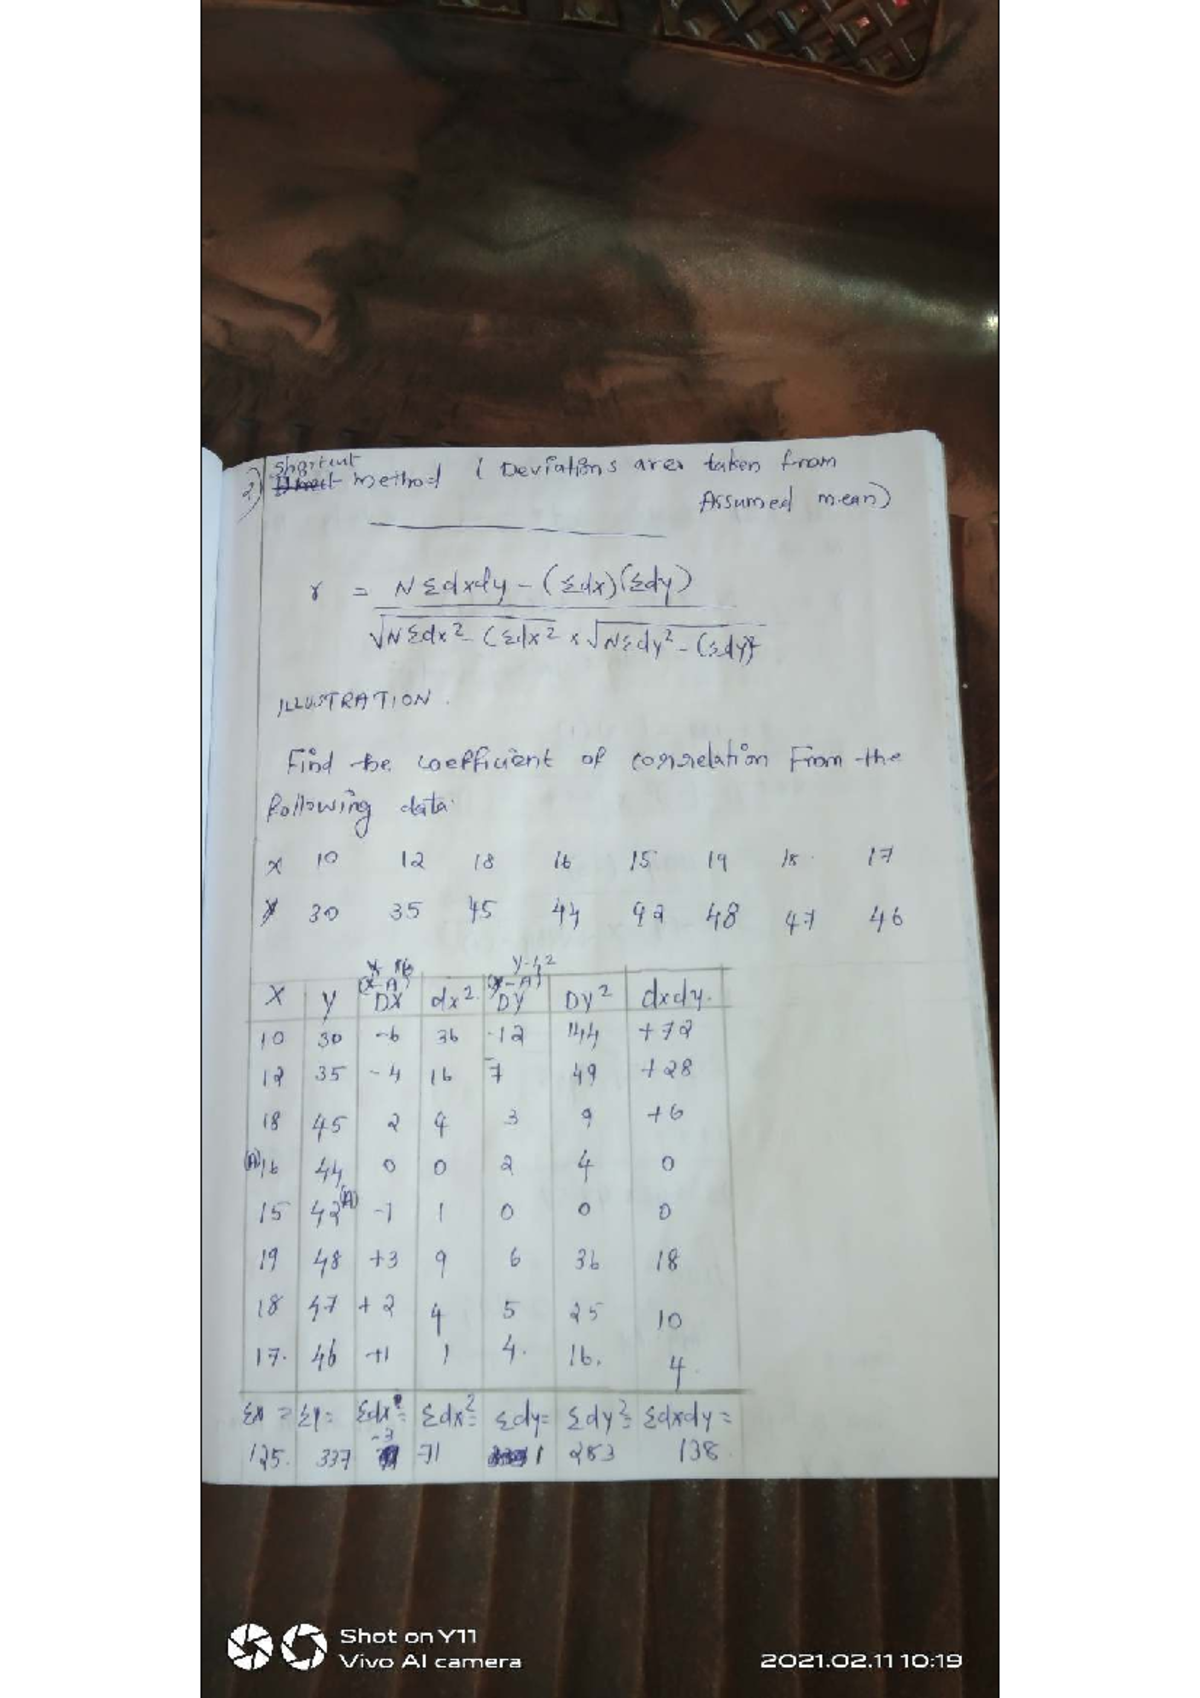 2) Shortcut
method (Deviations are taken from
Assumed mean)
r = N Σdxdy - (Σdx)(Σdy)
√NΣdx² - (Σdx² x √NΣdy² - (Σdy)²
ILLUSTRATION.
Find the coefficient of correlation From the
following data.
x 10 12 18 16 15 19 18 17
y 30 35 45 44 42 48 47 46
X-16 Y-42
(X-A) (Y-A)
X Y DX dx² DY DY² dxdy.
10 30 -6 36 -12 144 +72
12 35 -4 16 -7 49 +28
18 45 2 4 3 9 +6
(A)16 44 0 0 2 4 0
15 42(A) -1 1 0 0 0
19 48 +3 9 6 36 18
18 47 +2 4 5 25 10
17. 46 +1 1 4. 16. 4.
Σx = Σy = Σdx = Σdx² = Σdy = Σdy² = Σdxdy =
125. 337 -3 71 1 283 138.
Shot on Y11
Vivo AI camera
2021.02.11 10:19